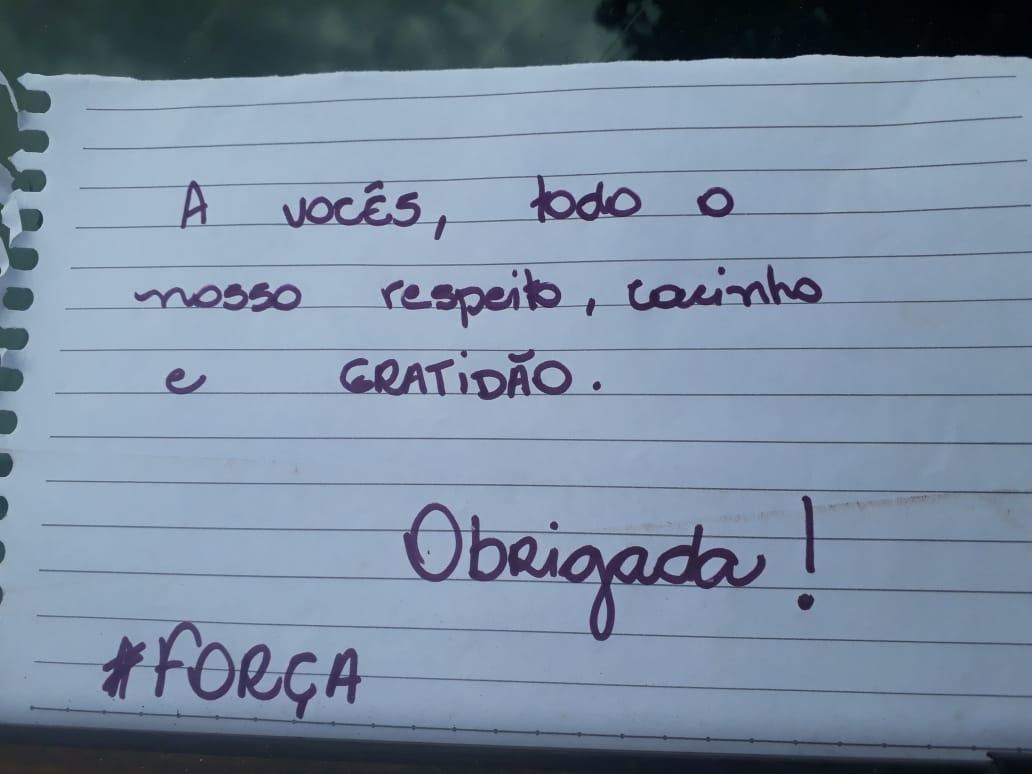 A VOCÊS, todo o
nosso respeito, carinho
e GRATIDÃO.
Obrigada!
#FORÇA